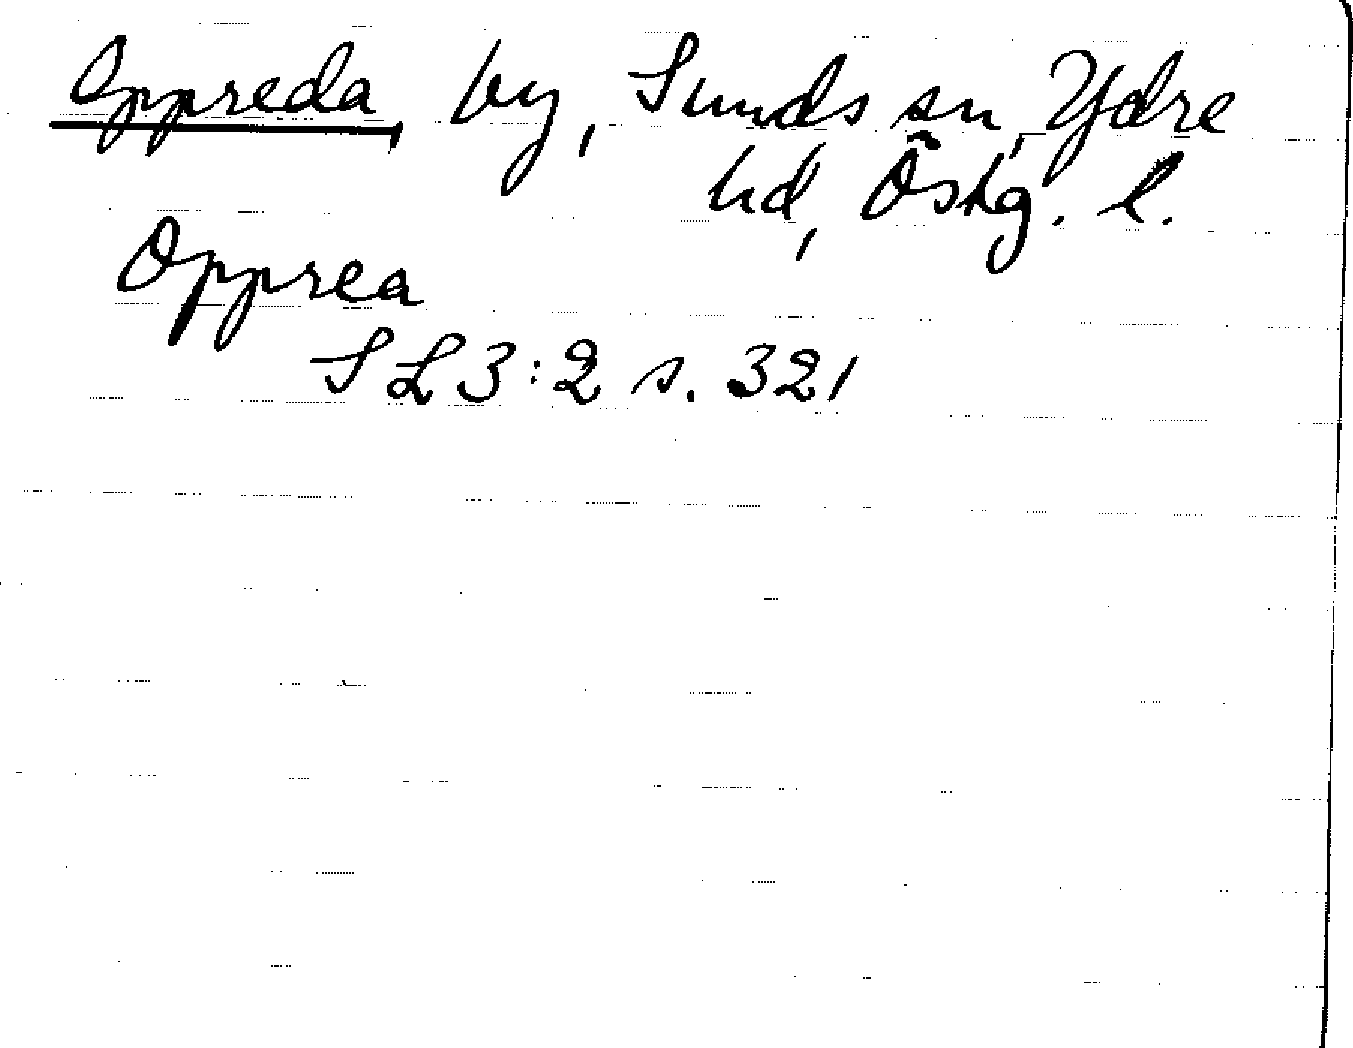 Oppreda, by, Sunds sn, Ydre
hd, Östg. l.
Opprea
SL 3:2 s. 321